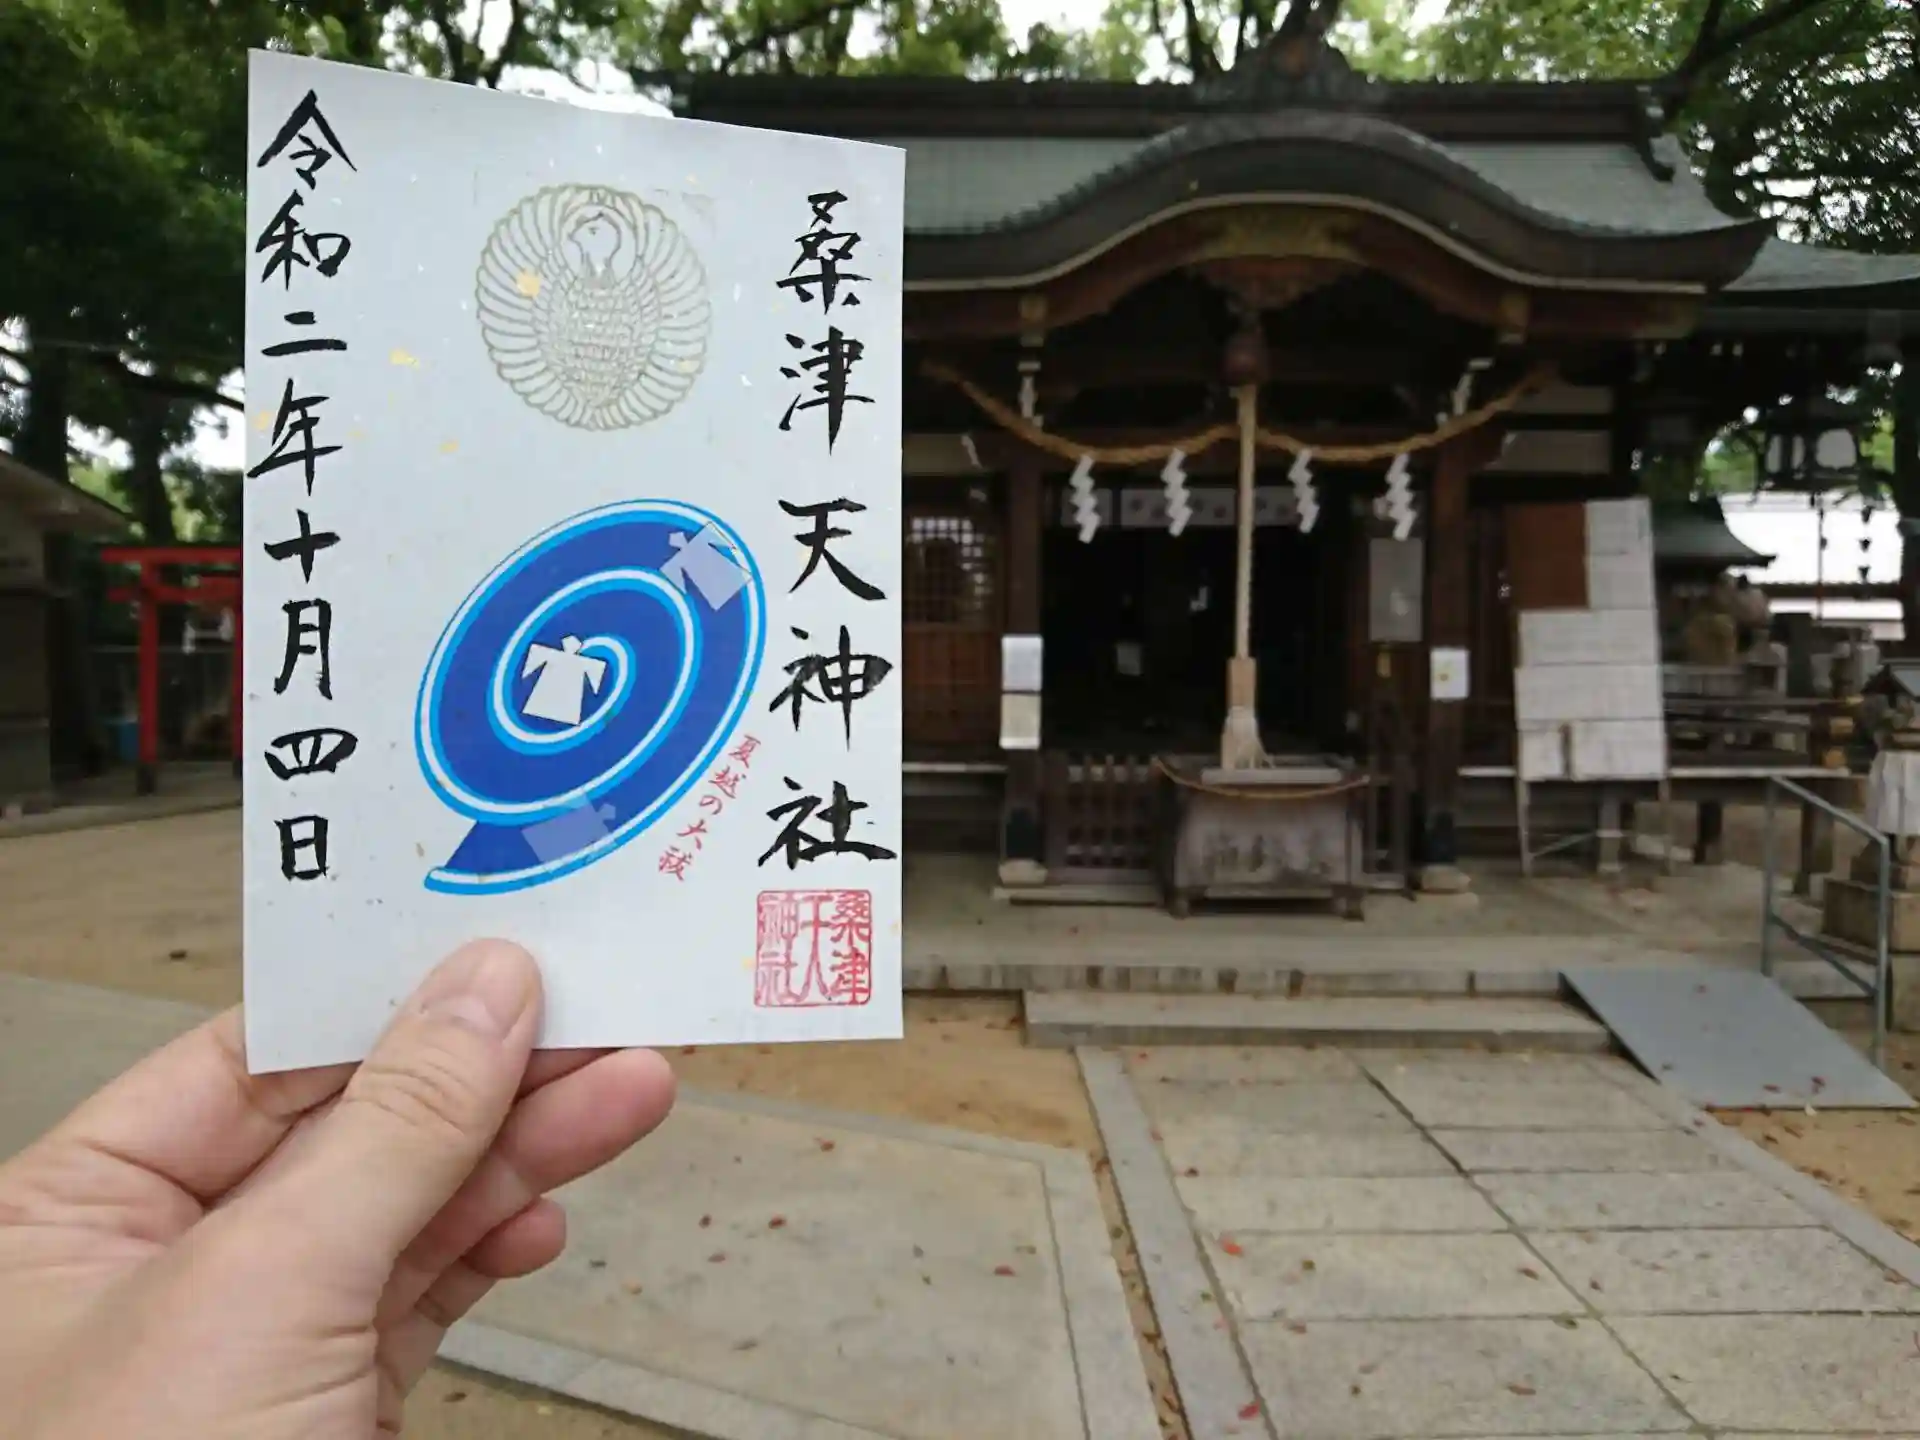 桑津天神社
夏越の大祓
桑津
天
神社
令和二年十月四日